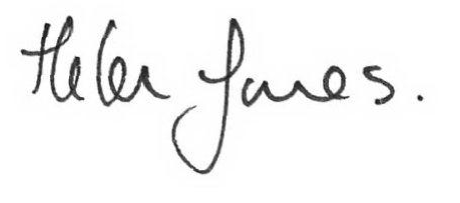 Helen Jones.